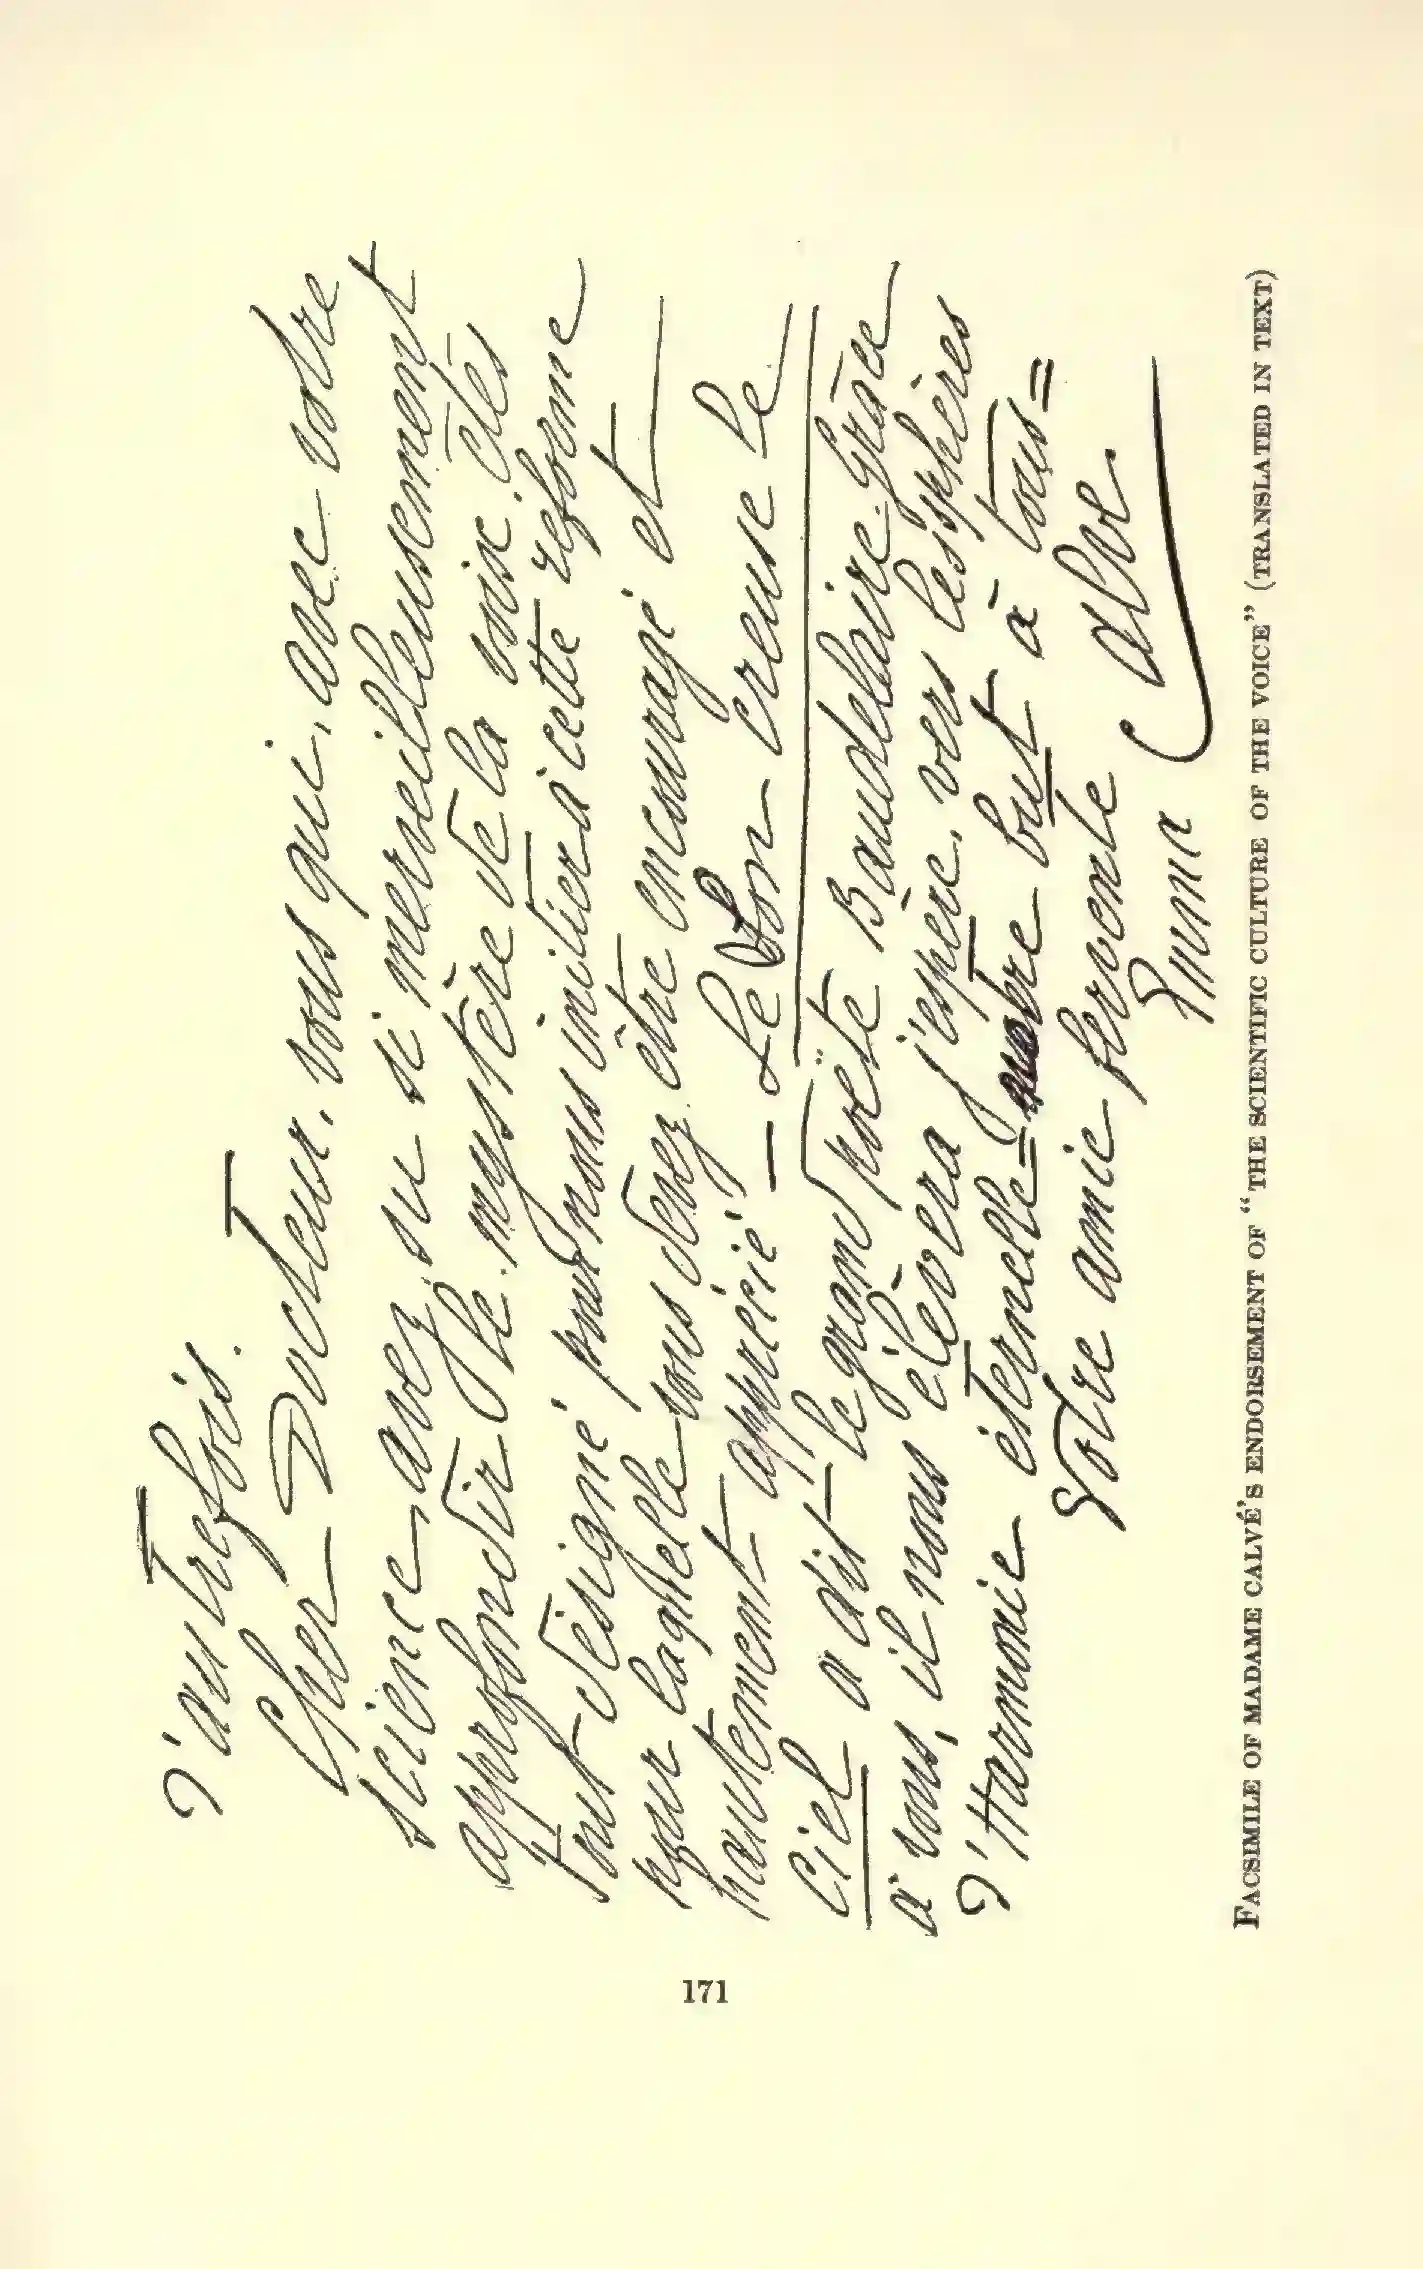 d'autrefois.
Cher Docteur. vous qui, avec votre
science, avez su si merveilleusement
approfondir le mystère de la voix. êtes
tout désigné pour nous initier à cette réforme
pour laquelle vous devez être encouragé et
hautement apprécié — Le Son creuse le
Ciel a dit le grand poëte Baudelaire. Grâce
à vous, il nous élèvera j'espère. vers les sphères
d'Harmonie éternelle = notre but à tous =
Votre amie fervente
Emma Calve
171
FACSIMILE OF MADAME CALVÉ'S ENDORSEMENT OF "THE SCIENTIFIC CULTURE OF THE VOICE" (TRANSLATED IN TEXT)